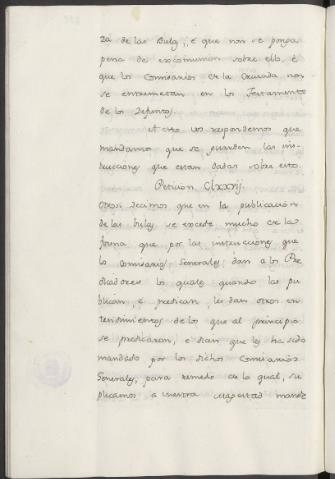 za de las Bulas, é que non se ponga
pena de excomunion sobre ello, é
que los Comisarios de la Cruzada non
se entremetan en los Testamentos
de los Defuntos.
A esto vos respondemos que
mandamos que se guarden las ins-
trucciones que estan dadas sobre esto.
Peticion CLxxxij.
Otrosi decimos que en la publicacion
de las bulas se excede mucho de la
forma que por las instrucciones que
los Comisarios Generales dan a los Pre-
dicadores los quales quando las pu-
blican, é predican, les dan otros en-
tendimientos de los que al principio
se predicaron, é dicen que les ha sido
mandado por los dichos Comisarios
Generales, para remedio de lo qual, su-
plicamos a vuestra Magestad mande